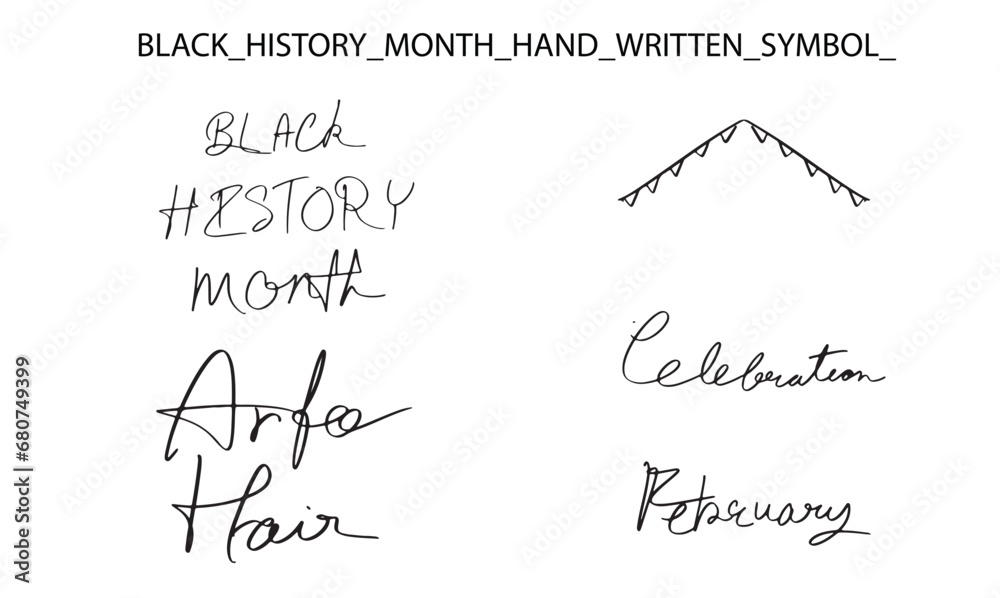 BLACK_HISTORY_MONTH_HAND_WRITTEN_SYMBOL_
BLACK
HISTORY
Month
Arfo
Hair
Celebration
February
Adobe Stock | #680749399